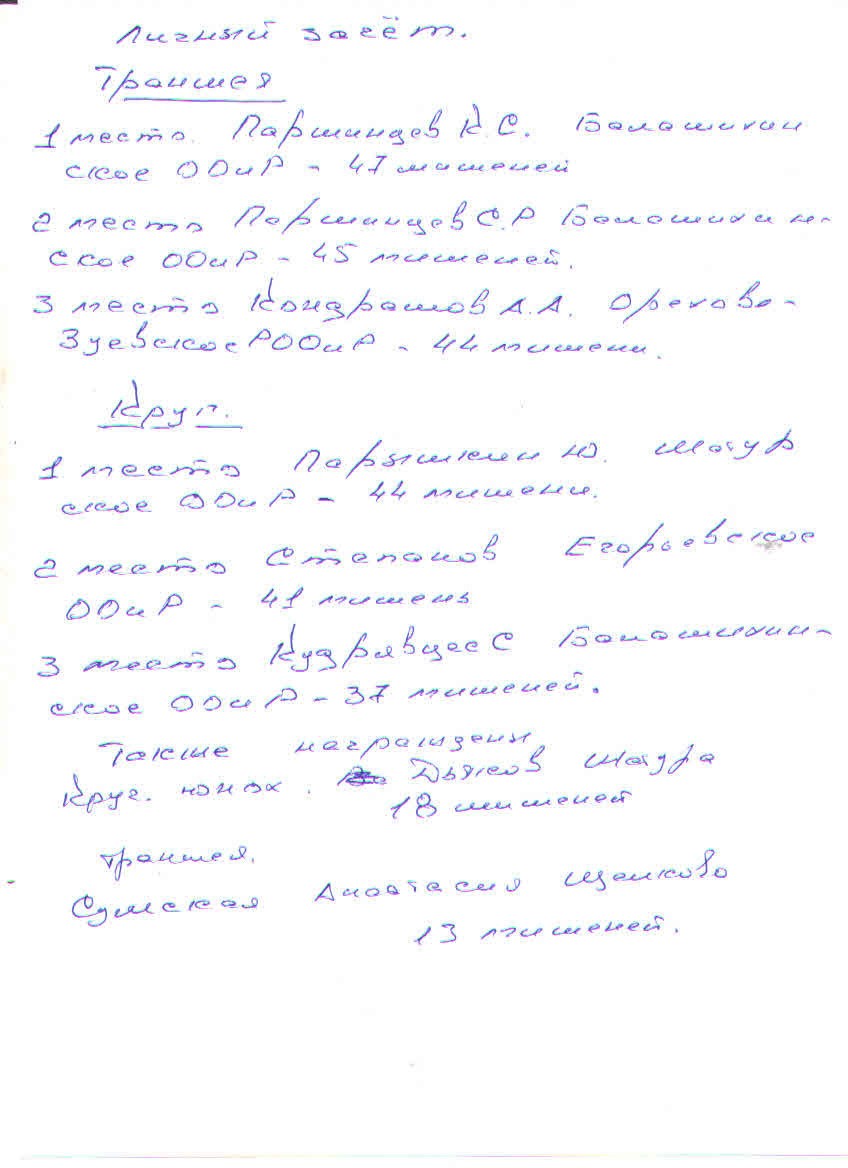 Личный зачёт.
Траншея
1 место. Паршинцев К.С. Балашихин
ское ООиР - 47 мишеней
2 место Паршинцев С.Р Балашихин-
ское ООиР - 45 мишеней.
3 место Кондрашов А.А. Орехово-
Зуевское РООиР - 44 мишени.
Круг.
1 место Ю. Шатур
ское ООиР - 44 мишени.
2 место Степанов Егорьевское
ООиР - 41 мишень
3 место С Балашихин-
ское ООиР - 37 мишеней.
Также награждены
Круг. юнош. Дьяков Шатура
18 мишеней
траншея.
Сумская Анастасия Щелково
13 мишеней.